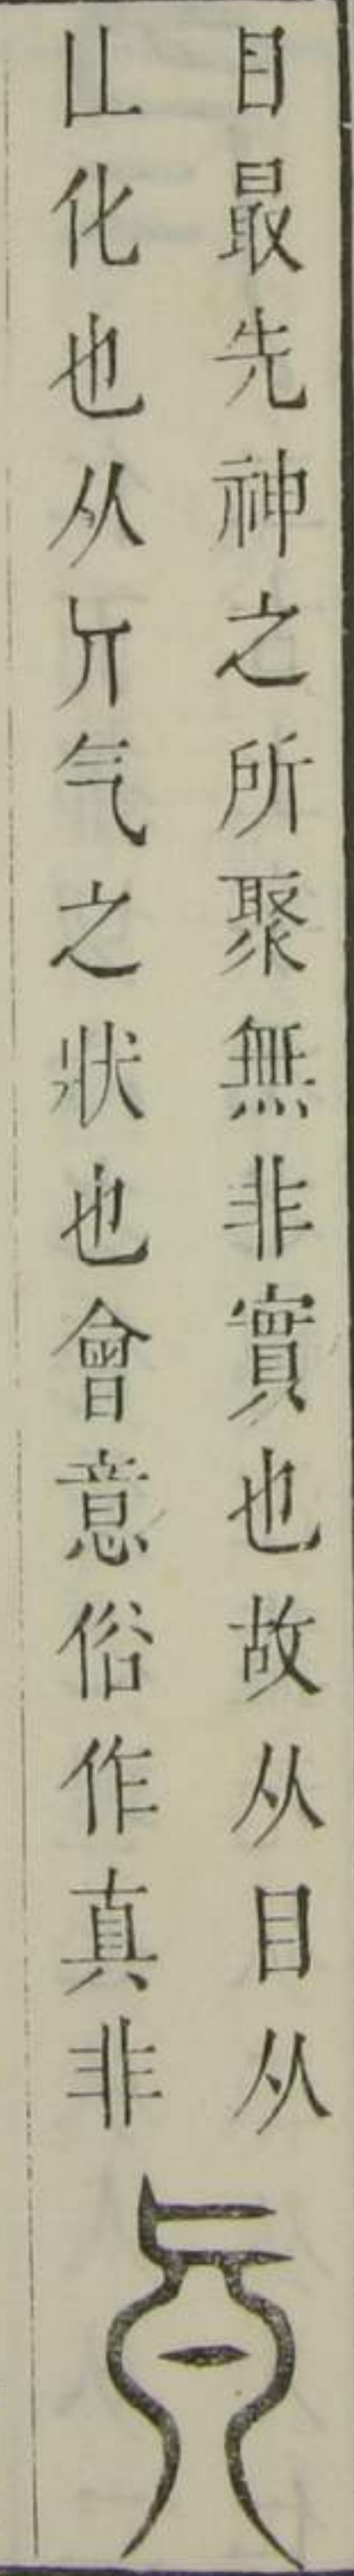 目最先神之所聚無非實也故从目从
化也从气之狀也會意俗作真非